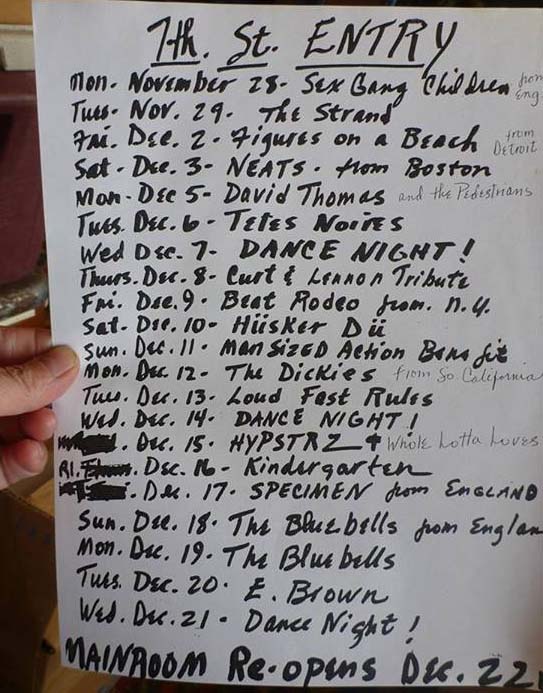 7th. St. ENTRY
Mon- November 28- Sex Gang Children from Eng.
Tues- Nov. 29- The Strand
Fri. Dec. 2- Figures on a Beach from Detroit
Sat- Dec. 3- NEATS- from Boston
Mon- Dec 5- David Thomas and the Pedestrians
Tues. Dec. 6- Tetes Noires
Wed Dec. 7- DANCE NIGHT!
Thurs. Dec. 8- Curt & Lennon Tribute
Fri. Dec. 9- Beat Rodeo from. N.Y.
Sat- Dec. 10- Hüsker Dü
Sun. Dec. 11- Man Sized Action Benefit
Mon. Dec. 12- The Dickies from So. California
Tues. Dec. 13- Loud Fast Rules
Wed. Dec. 14- DANCE NIGHT!
. Dec. 15- HYPSTRZ & Whole Lotta Loves
Dec. 16- Kindergarten
. Dec. 17- SPECIMEN from ENGLAND
Sun. Dec. 18- The Bluebells from Englan
Mon. Dec. 19- The Bluebells
Tues. Dec. 20- E. Brown
Wed. Dec. 21- Dance Night!
MAINROOM Re-opens Dec. 22